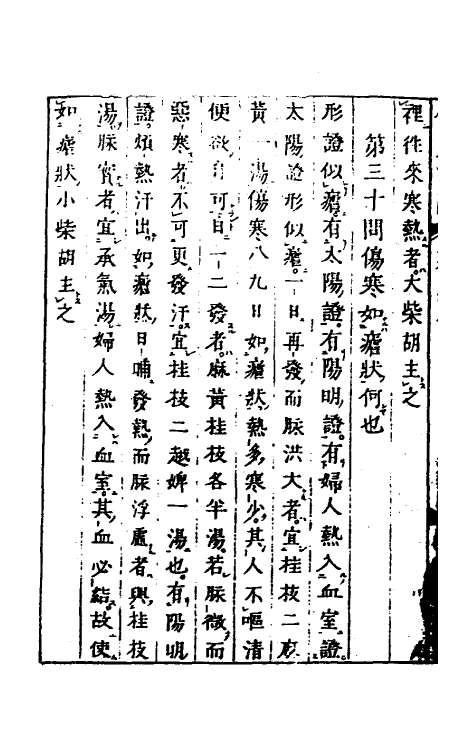 裡往來寒熱者大柴胡主之
第三十問傷寒如瘧狀何也
形證似瘧有太陽證有陽明證有婦人熱入血室證
太陽證形似瘧一日再發而脉洪大者宜桂枝二麻
黃一湯傷寒八九日如瘧狀熱多寒少其人不嘔清
便欲自可日一二發者麻黃桂枝各半湯若脉微而
惡寒者不可更發汗宜桂枝二越婢一湯也有陽明
證煩熱汗出如瘧狀日晡發熱而脉浮虛者與桂枝
湯脉實者宜承氣湯婦人熱入血室其血必結故使
如瘧狀小柴胡主之